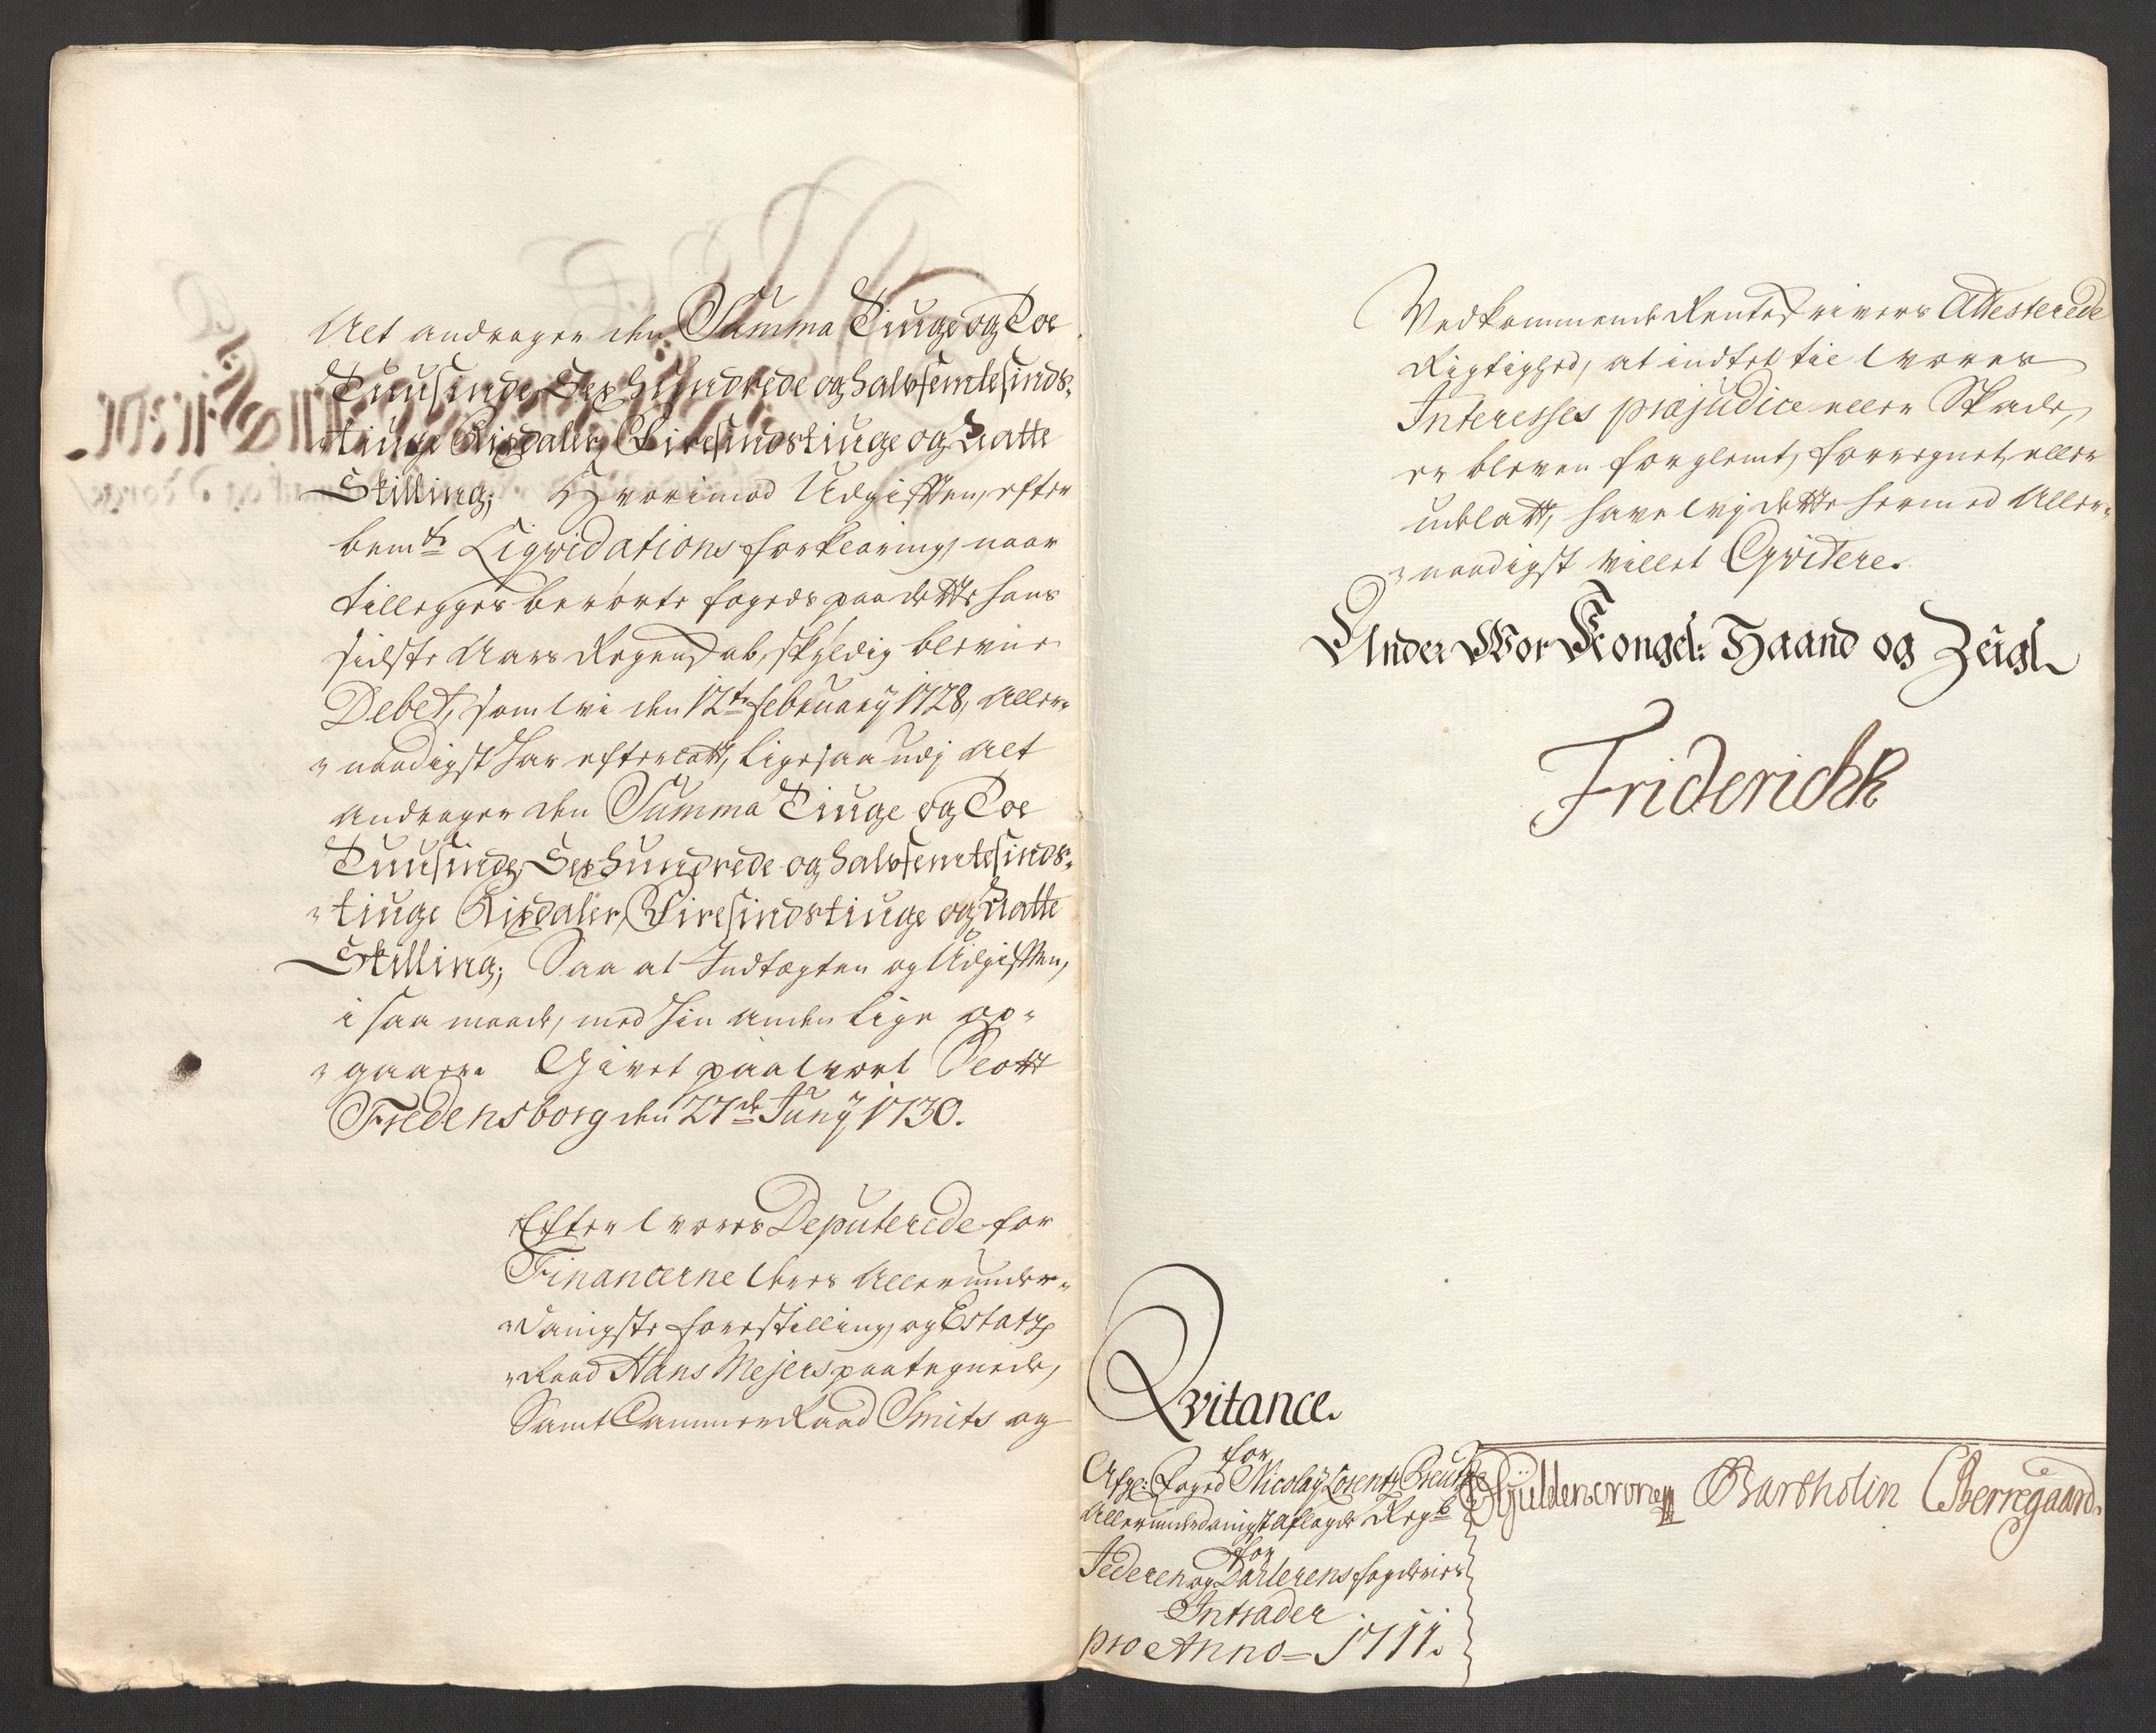 Alt andrager den Summa Tiuge og Toe
Tuusinde, Sex Hundrede og halvfemtesinds-
-tiuge Rixdaler, Firesindstiuge og Aatte
Skilling; Hvorimod Udgiften, efter
bem.te Liqvidations forklaring, naar
tillegges berørte fogeds paa dette hans
sidste Aars Regenskab, skyldig blevne
Debet, som Wi den 12te february 1728, Aller-
-naadigst har efterladt, ligesaa udj Alt
andrager den Summa Tiuge og Toe
Tuusinde, Sex Hundrede og halvfemtesinds-
-tiuge Rixdaler, Firesindstiuge og Aatte
Skilling; Saa at Indtægten og Udgiften,
i saa maade, med hin anden lige op-
-gaaer. Givet paa Wort Slott
Fredensborg den 27de Junÿ 1730.
Efter Wores Deputerede for
Financerne Deres Allerunder-
-danigste forestilling, og Estatz
-Raad Hans Mejers paategnede,
Samt Cammer Raad Smits og
Vedkommende Renteskrivers Attesterede
Rigtighed, at indtet til Wores
Interesses præjudice eller Skade,
er bleven forglemt, forregnet, eller
udeladt, have Wij dette hermed Aller-
-naadigst villet Qvitere.
Under Vor Kongel: Haand og Zeigl
Friderich R
Qvitance.
for
Afg: Foged Nicolaÿ Lorentz
Allerunderdanigst aflagde Regsk
for
Jederen og Dahlerens fogderies
Intrader
pro Anno = 1711.
Gÿldencrone Bartholin CBerregaard.